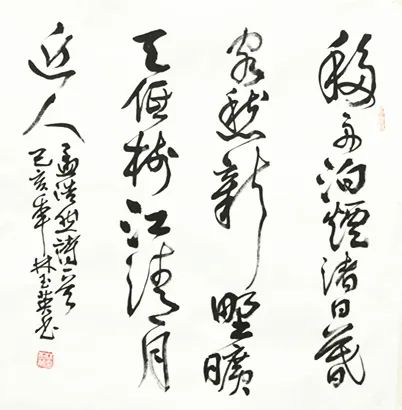 移舟泊煙渚日暮
客愁新野曠
天低樹江清月
近人
孟浩然詩一首
己亥年林玉英书